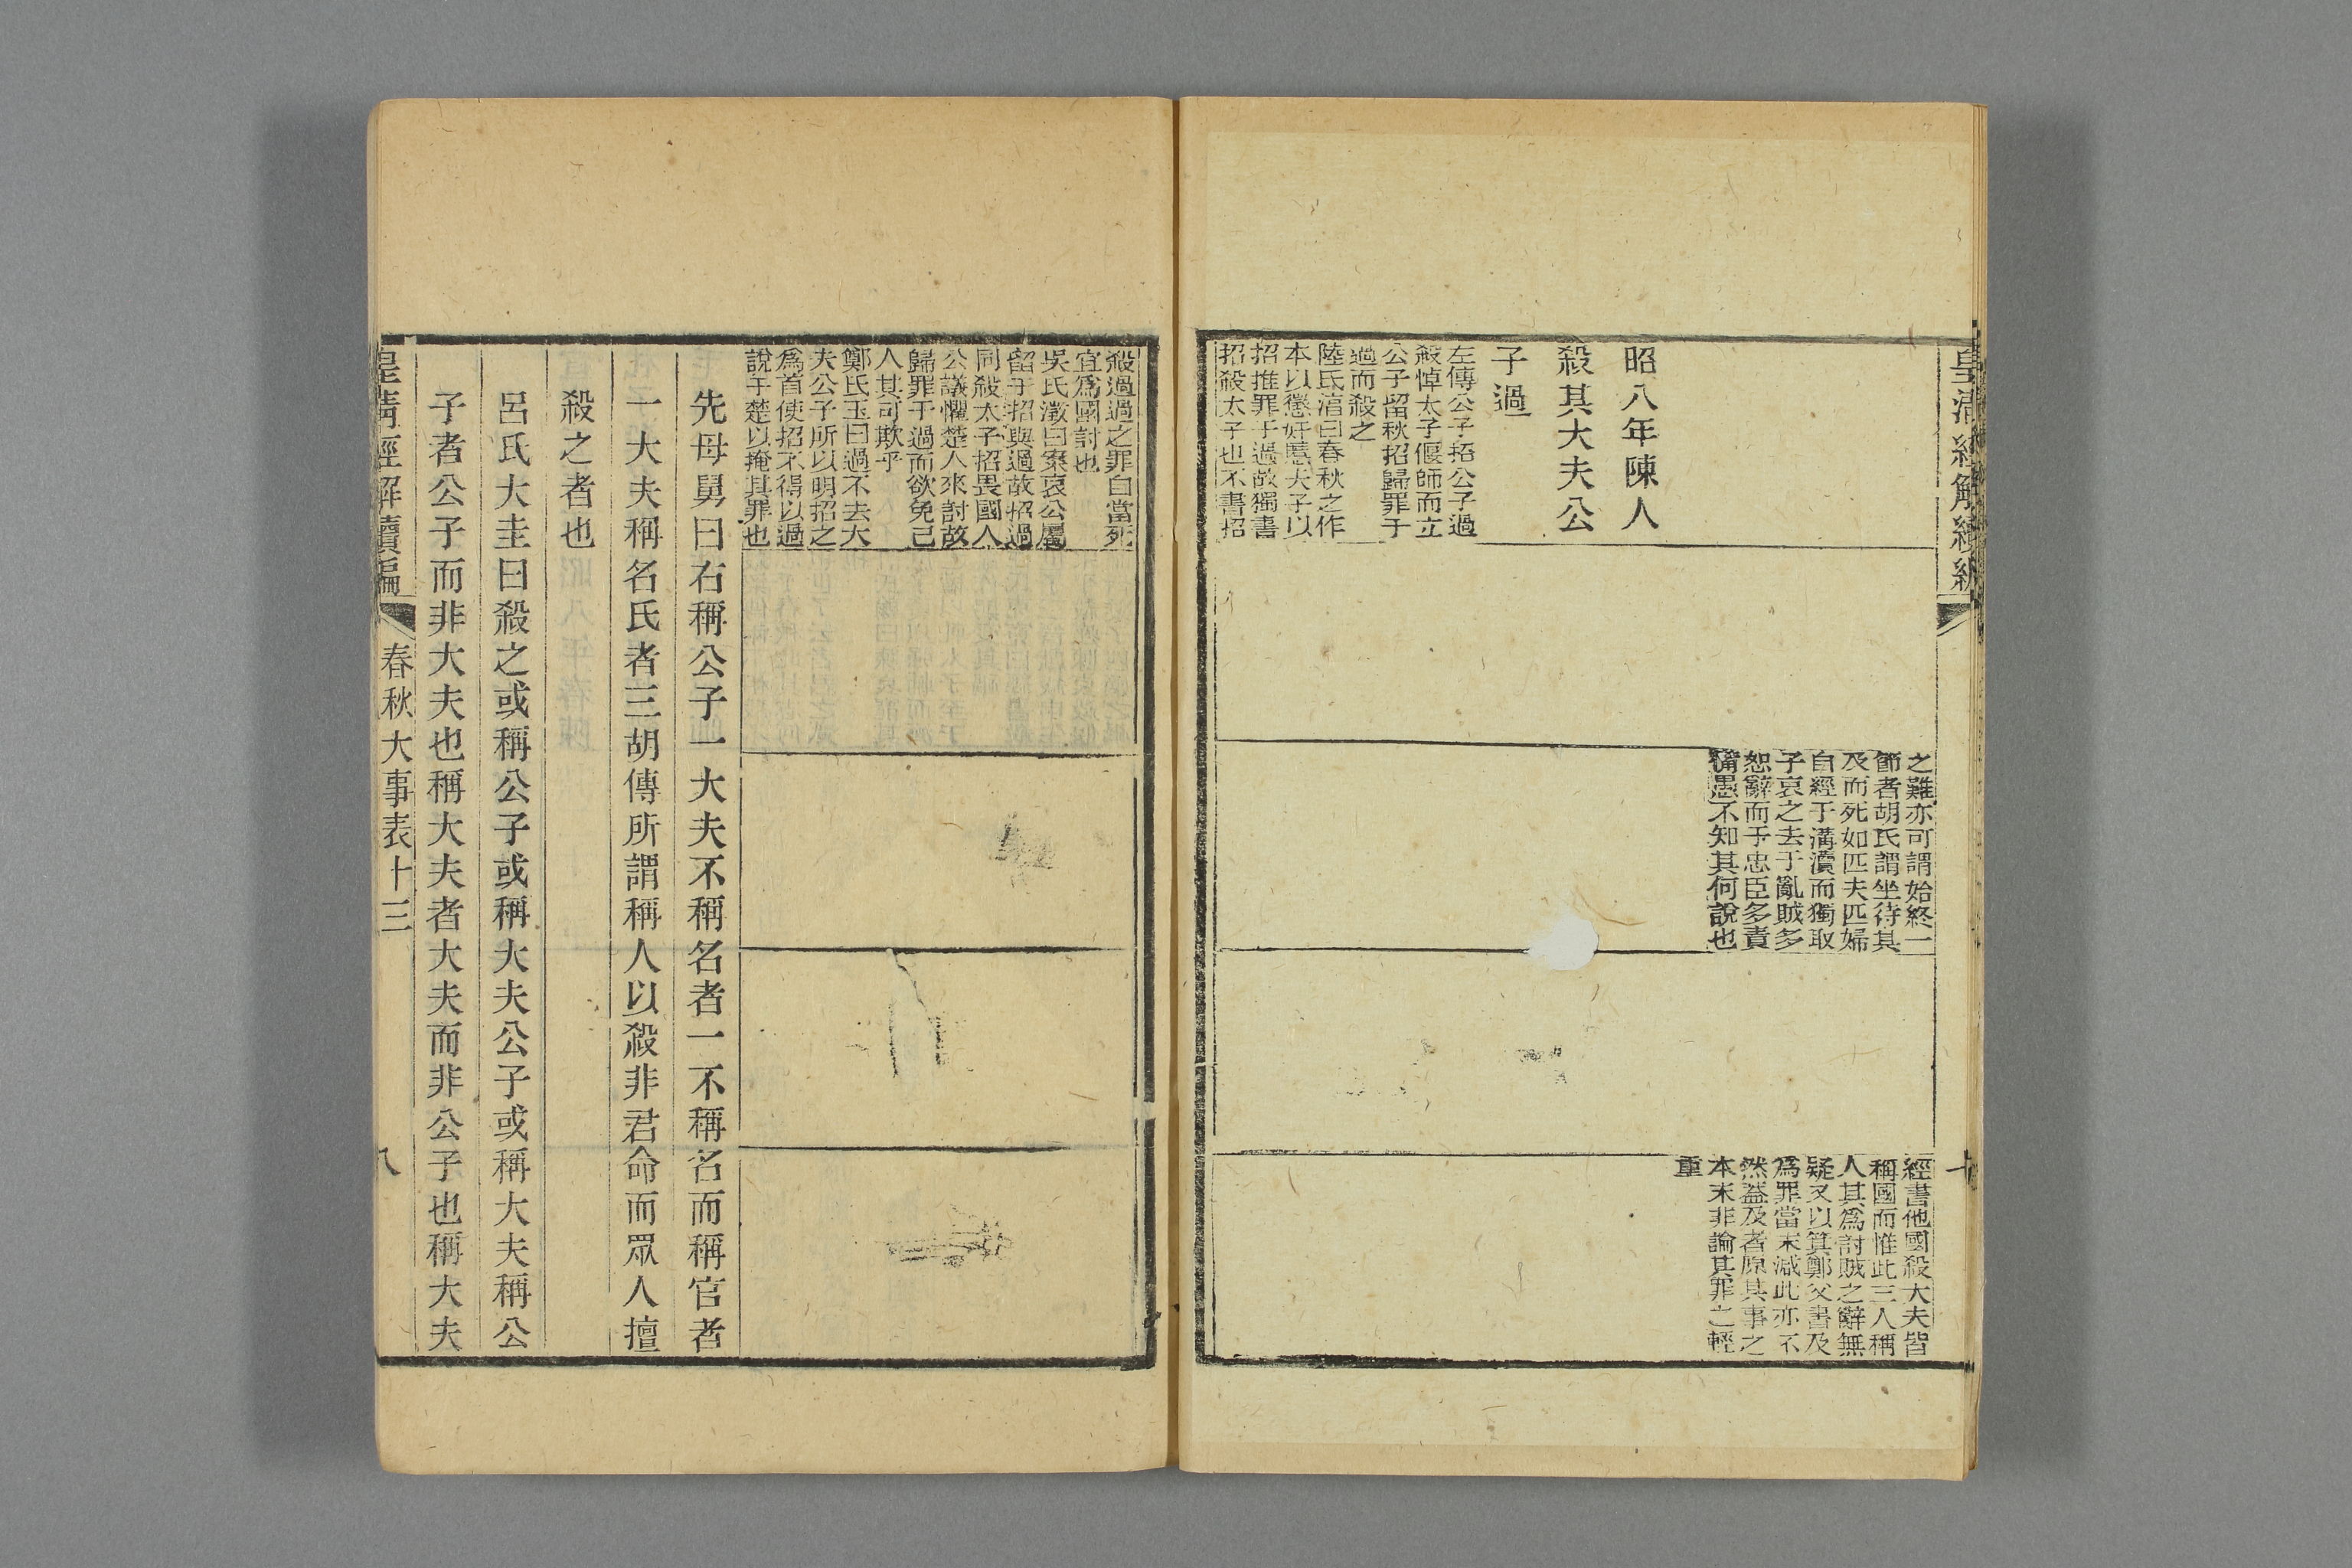 皇清經解續編
之難亦可謂始終一
節者胡氏謂坐待其
及而死如匹夫匹婦
自經于溝瀆而獨取
子哀之去于亂賊多
恕辭而于忠臣多責
備愚不知其何說也
經書他國殺大夫皆
稱國而惟此三人稱
人其爲討賊之辭無
疑又以箕鄭父書及
爲罪當末減此亦不
然蓋及者原其事之
本末非論其罪之輕
重
昭八年陳人
殺其大夫公
子過
左傳公子招公子過
殺悼太子偃師而立
公子留秋招歸罪于
過而殺之
陸氏淳曰春秋之作
本以懲奸慝夫子以
招推罪于過故獨書
招殺太子也不書招
殺過過之罪自當死
宜爲國討也
吳氏澂曰案哀公屬
留于招與過故招過
同殺太子招畏國人
公議懼楚人來討故
歸罪于過而欲免己
人其可欺乎
鄭氏玉曰過不去大
夫公子所以明招之
爲首使招不得以過
說于楚以掩其罪也
先母舅曰右稱公子一大夫不稱名者一不稱名而稱官者
一大夫稱名氏者三胡傳所謂稱人以殺非君命而眾人擅
殺之者也
呂氏大圭曰殺之或稱公子或稱大夫公子或稱大夫稱公
子者公子而非大夫也稱大夫者大夫而非公子也稱大夫
皇清經解續編
春秋大事表十三
八